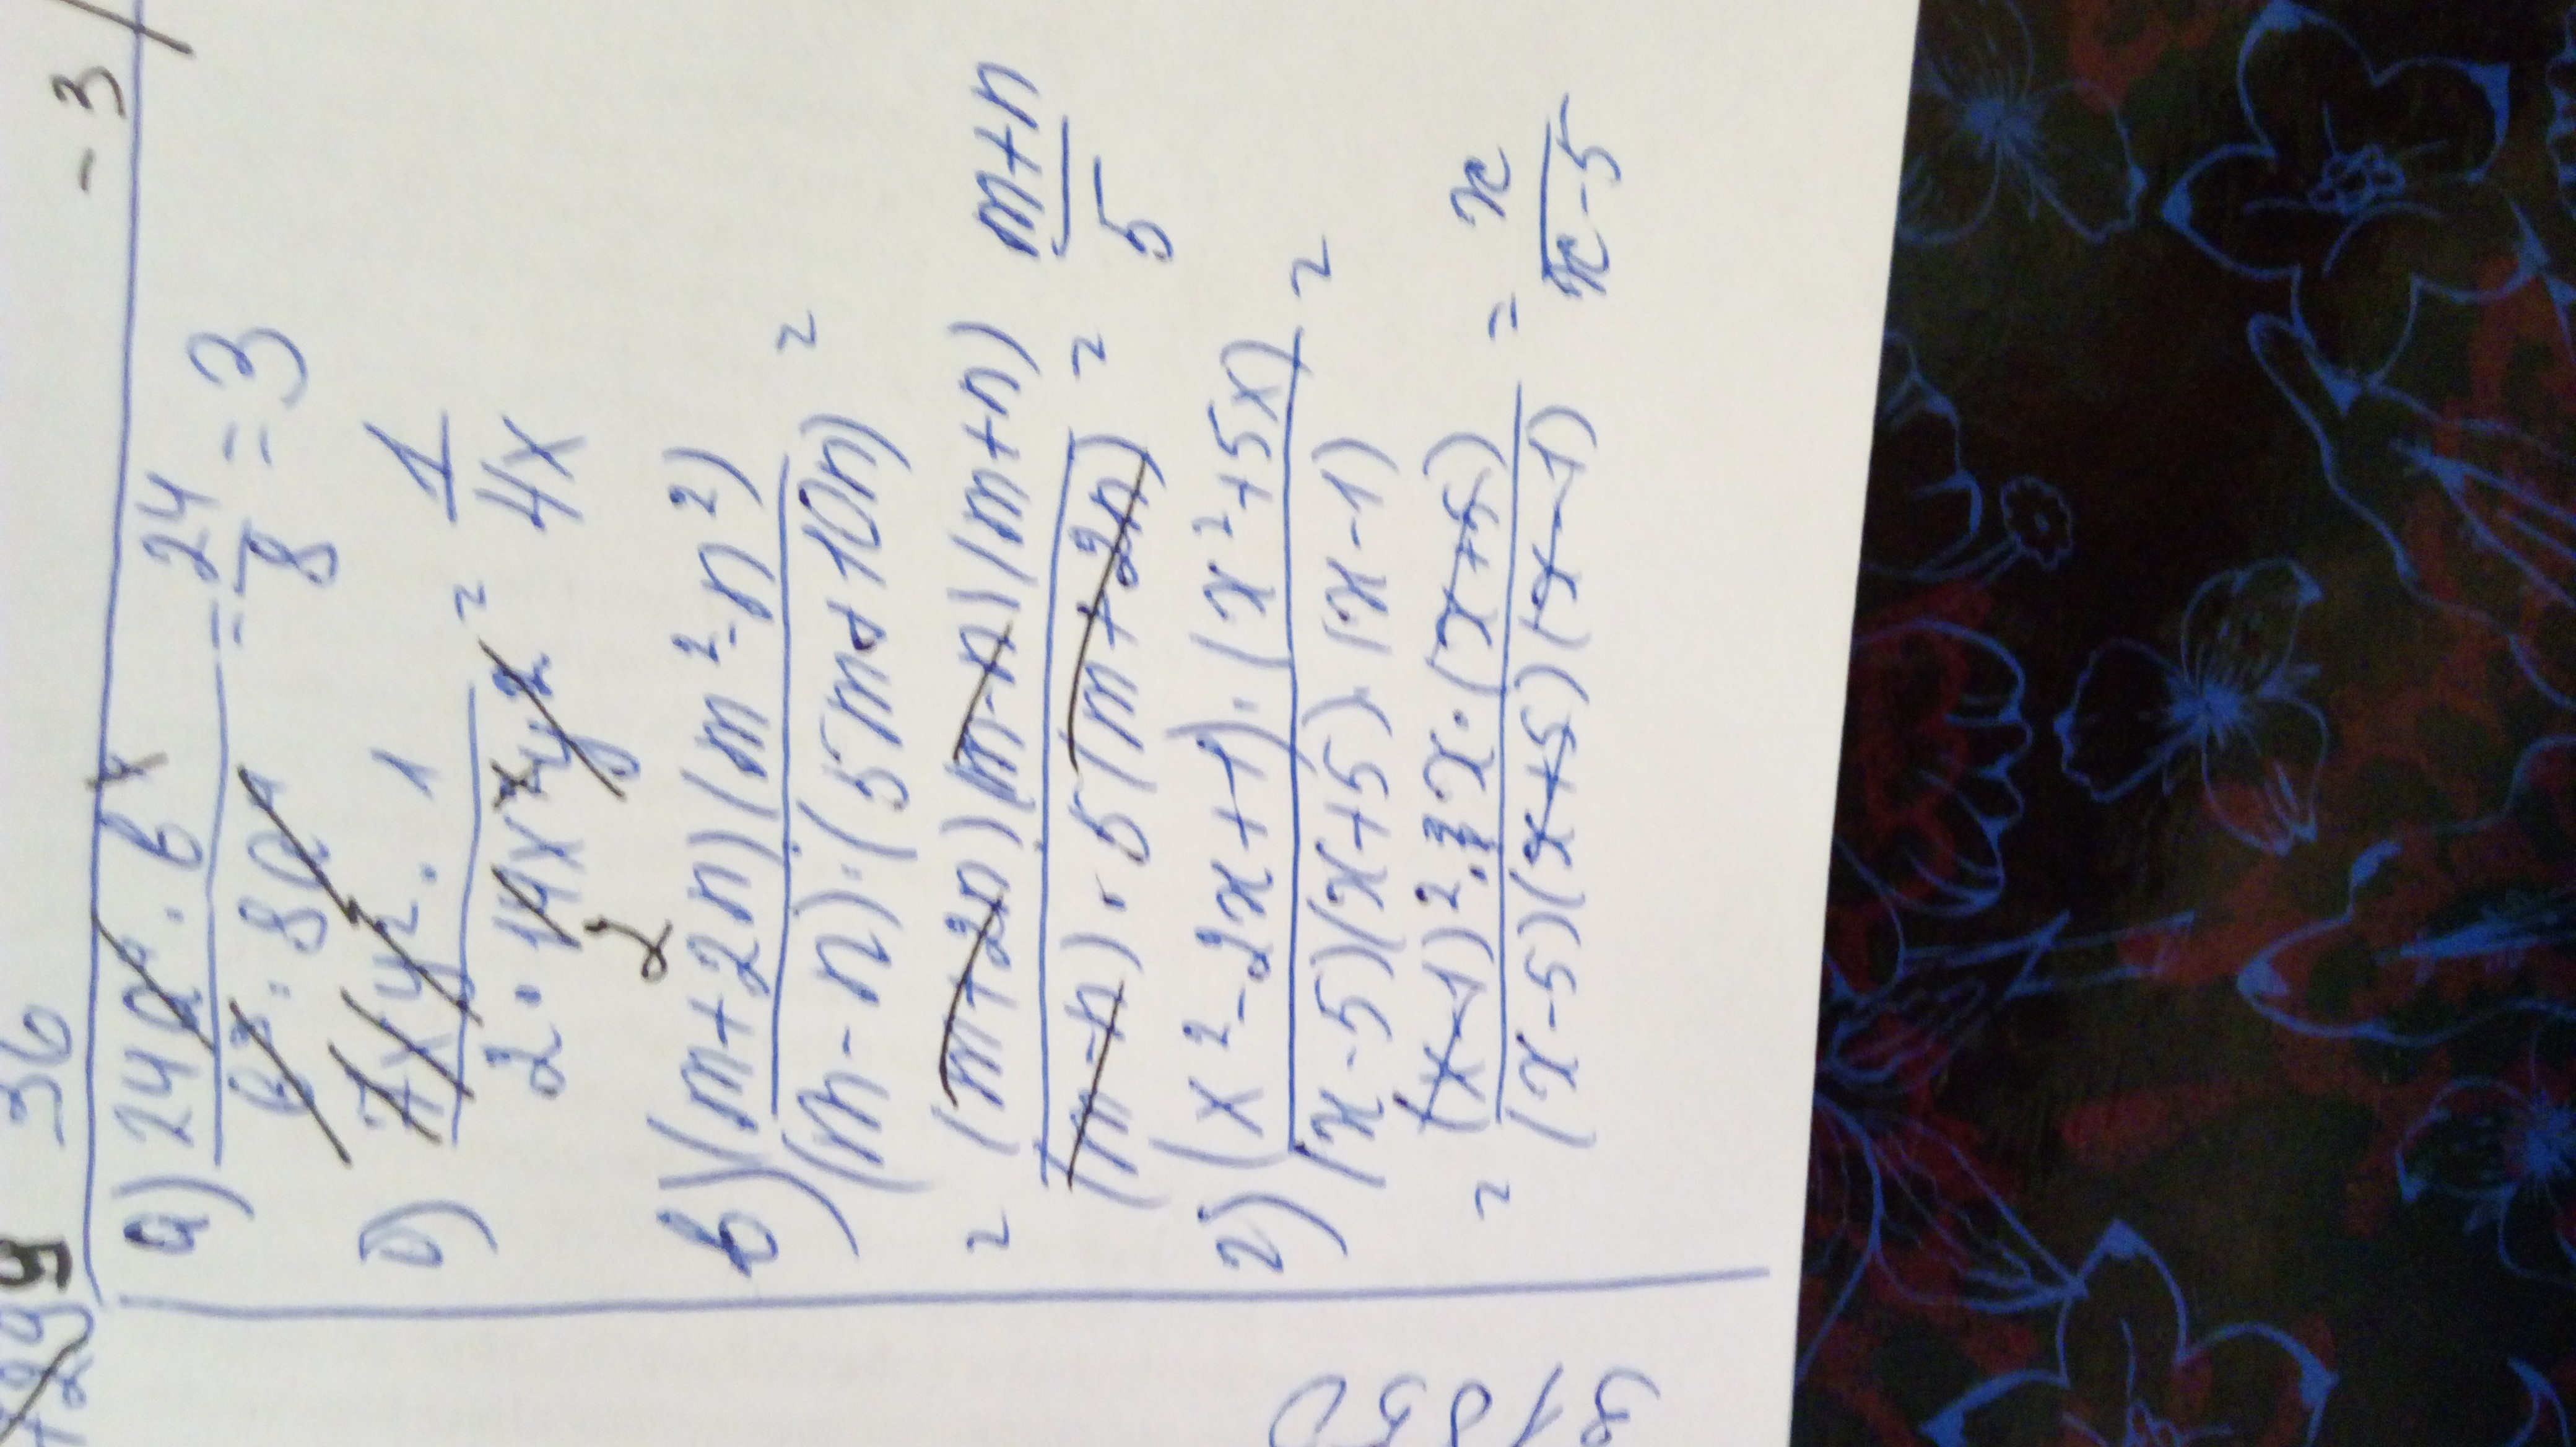 36 -3
а) 24a⁴ · b⁴ / b³ · 8a⁴ = 24/8 = 3
б) 7xy² · 1 / 2 · 14x²y² = 1/4x
2
в) (m+2n)(m²-n²) / (m-n)·(5m+10n) =
= (m+2n)(m-n)(m+n) / (m-n)·5(m+2n) = m+n/5
г) (x²-2x+1)·(x²+5x) / (x-5)(x+5)·(x-1) =
= (x-1)²·x·(x+5) / (x-5)(x+5)(x-1) = x/x-5